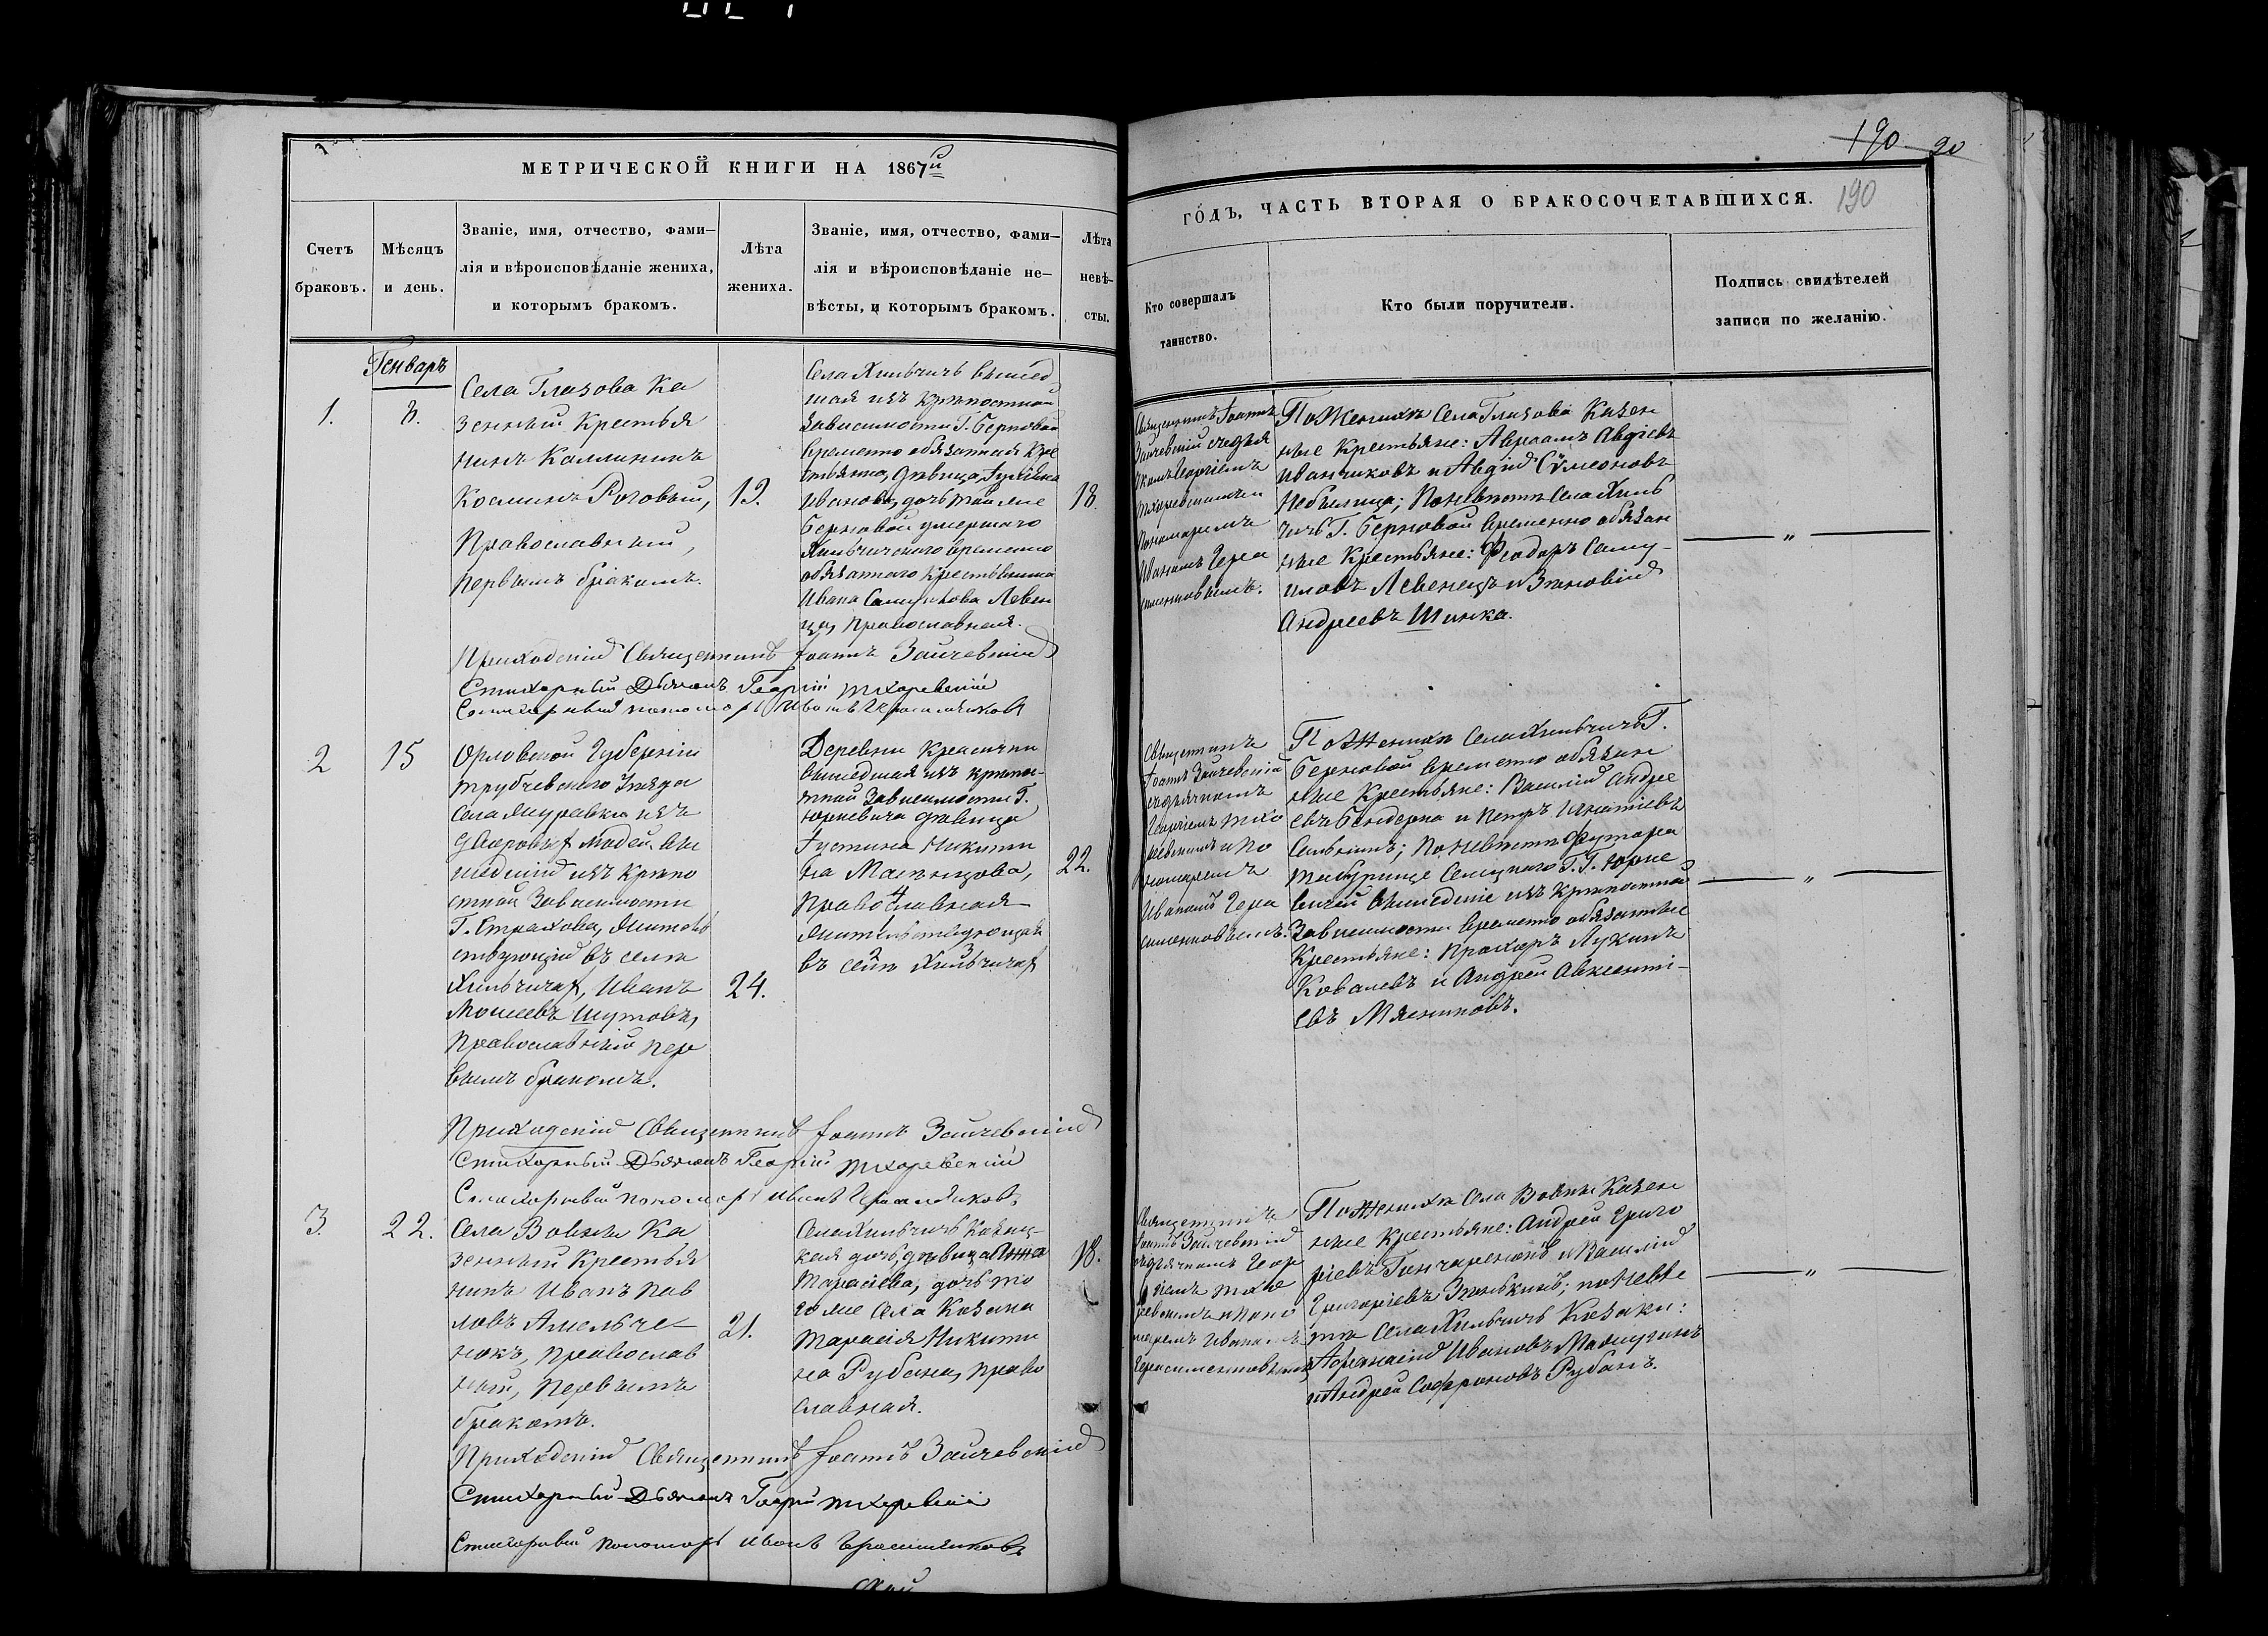 МЕТРИЧЕСКОЙ КНИГИ НА 1867й
Счетъ
браковъ.
Мѣсяцъ
и день.
Званіе, имя, отчество, фами–
лія и вѣроисповѣданіе жениха,
и которымъ бракомъ.
Лѣта
жениха.
Званіе, имя, отчество, фами–
лія и вѣроисповѣданіе не–
вѣсты, и которымъ бракомъ.
Лѣта
невѣ–
сты.
Генваръ
1.
8.
Села Глазова Ка
зенный Крестья
нинъ Каллиникъ
Косминъ Роговый,
Православный,
первымъ бракомъ.
19.
Села Хильчичь вышед
шая изъ крѣпостной
зависимости Г. Берновой
временно обязанная Кре
стьянка, дѣвица, Іуліана
Иванова, дочь той же
Берновой умершаго
Хильчичскаго временно
обязаннаго крестьянина
Ивана Самуилова Левен
ца, православная.
18.
Приходскій Священникъ Іоаннъ Заичевскій
Стихарный Дьячокъ Георгій Тхоревскій
Стихарный пономарь Иванъ Герасименковъ
2
15
Орловской Губерніи
Трубчевского Уѣзда
Села Журавки изъ
дворовых людей вы
шедшій изъ Крѣпо
стной Зависимости
Г. Страхова, жительс
ствующій въ селѣ
Хильчичах, Иванъ
Моисеевъ Шутовъ,
Православный пер
вымъ бракомъ.
24.
Деревни Крепички
вышедшая изъ крѣпос-
тной Зависимости Г.
Юркевича дѣвица
Іустина Никити
на Мательцова,
православная
жительствующая
въ селѣ Хильчичах
22.
Приходскій Священникъ Іоаннъ Заичевскій
Стихарный Дьячокъ Георгій Тхоревскій
Стихарный пономарь Иванъ Герасименковъ
3.
22.
Села Вовны Ка
зенный Крестья
нинъ Иванъ Пав
ловъ Амельче-
нокъ, Православ
ный, первымъ
бракомъ.
21.
Села Хильчичь Казац-
кая дочь, дѣвица Анна
Тарасіева, дочь то
го же села Козака
Тарасія Никити
на Рубана, право
славная.
18.
Приходскій Священникъ Іоаннъ Заичевскій
Стихарный Дьячокъ Георгій Тхоревскій
Стихарный пономарь Иванъ Герасименковъ
190 90
ГОДЪ, ЧАСТЬ ВТОРАЯ О БРАКОСОЧЕТАВШИХСЯ.
190
Кто совершалъ
таинство.
Кто были поручители.
Подпись свидѣтелей
записи по желанію.
Священникъ Іоаннъ
Заичевскій съ дья
чкомъ Георгіемъ
Тхоревскимъ и
Пономаремъ
Иваномъ Гера
сименковымъ.
По Женихѣ Села Глазова Казен
ные Крестьяне: Авраамъ Авдіевъ
Иванчиковъ и Авдій Симеоновъ
Небылица; По невѣстѣ Села Хиль
чичь Г. Берновой временно обязан
ные Крестьяне: Феодоръ Саму-
иловъ Левенецъ и Зиновій
Андреевъ Шинка.
— „ —
Священникъ
Іоаннъ Заичевскій
съ дьячкомъ
Георгіемъ Тхо
ревскимъ и По
номаремъ
Иваномъ Гера
сименковымъ.
По Женихѣ Села Хильчичь Г.
Берновой временно обязан
ные Крестьяне: Василій Андре
евъ Бендерка и Петръ Игнатіевъ
По невѣстѣ Футора
Г. Г. Юрке
вичей вышедшіе изъ крѣпостной
Зависимости временно обязанные
Крестьяне: Прохоръ Лукинъ
Ковалевъ и Андрей Авксенті-
евъ Мясниковъ.
— „ —
Священникъ
Іоаннъ Заичевскій
съ дьячкомъ Геор
гіемъ Тхо
ревскимъ и Поно
маремъ Иваномъ
Герасименковымъ
По Женихѣ Села Вовны Казен
ные Крестьяне: Андрей Григо
ріевъ Гончаренокъ и Василій
Григоріевъ Зинькинъ; по невѣс
тѣ Села Хильчичь Козаки:
Афанасій Ивановъ
и Андрей Софроновъ Рубанъ.
— „ —